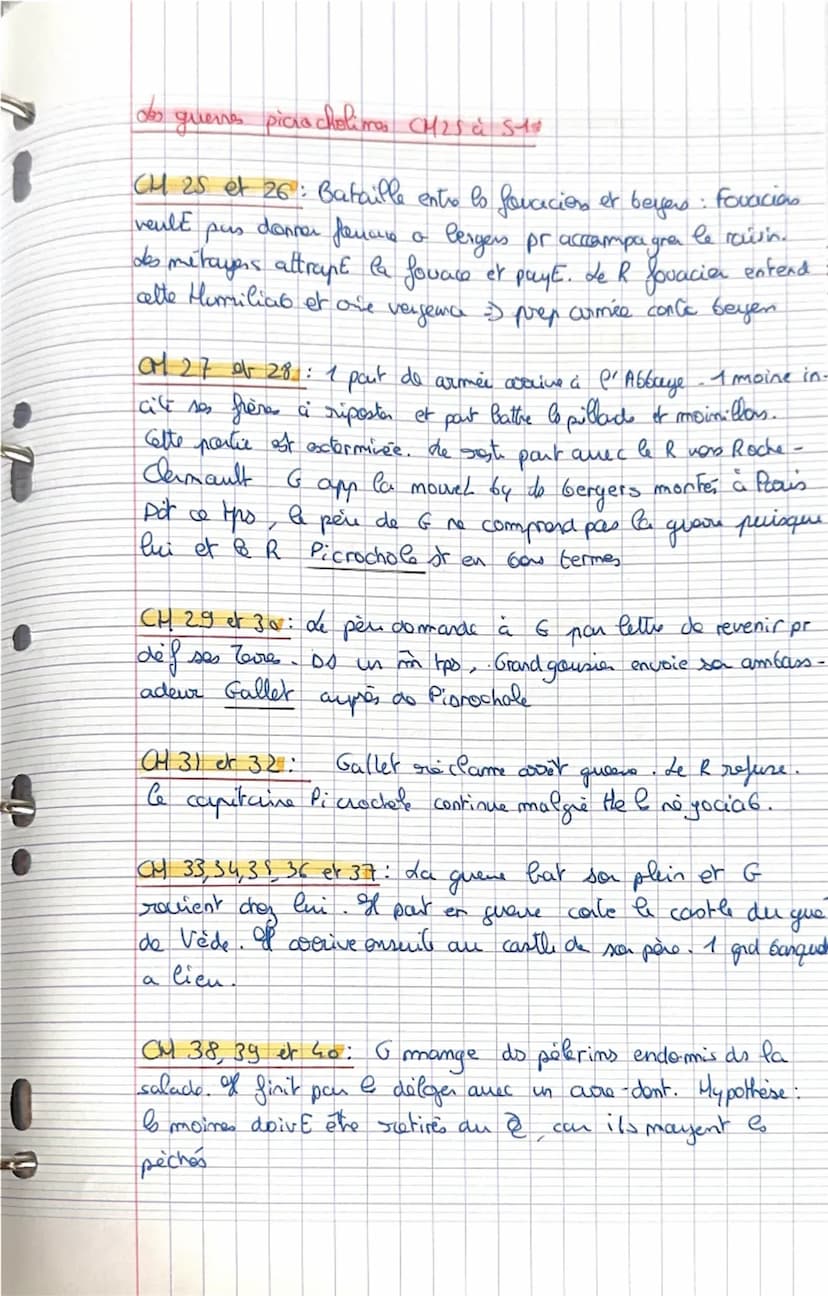 Les guerres picrocholines CH25 à 51
CH 25 et 26 : Bataille entre les fouaciers et bergers : Fouaciers
veulE pas donner fouace a bergers pr accompagner le raisin.
des métayers attrapE la fouace et payE. Le R fouacier entend
cette Humiliat° et crie vengeance => prep armée contre berger
CH 27 et 28 : 1 part de armée arrive à l'Abbaye. 1 moine in-
cite ses frères à riposter et part battre les pillards et moinillons.
Cette partie est exterminée. Le reste part avec le R vers Roche-
Clermault G app la nouvel by des bergers montés à Paris
Pdt ce tps, le père de G ne comprend pas la guerre puisque
lui et le R Picrochole st en bons termes
CH 29 et 30 : Le père demande à G par lettre de revenir pr
déf ses Terres. DS un m̂ tps, Grandgousier envoie son ambass-
adeur Gallet auprès de Picrochole
CH 31 et 32 : Gallet réclame arrêt guerre. Le R refuse.
Le capitaine Picrochole continue malgré tte les négociat°.
CH 33, 34, 35, 36 et 37 : La guerre bat son plein et G
revient chez lui. Il part en guerre contre le castle du gué
de Vède. Il arrive ensuite au castle de son père. 1 grd banquet
a lieu.
CH 38, 39 et 40 : G mange des pèlerins endormis ds la
salade. Il finit par les déloger avec un cure-dent. Hypothèse :
les moines doivE être retirés du car ils mangent les
péchés